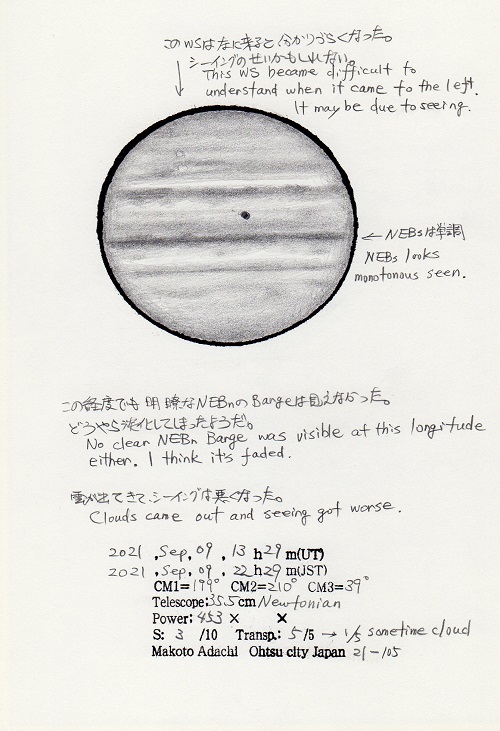 このWSは左に来ると分かりづらくなった。
シーイングのせいかもしれない。
This WS became difficult to
understand when it came to the left.
It may be due to seeing.
← NEBsは単調
NEBs looks
monotonous seen.
この経度でも明瞭なNEBnのBargeは見えなかった。
どうやら淡化してしまったようだ。
No clear NEBn Barge was visible at this longitude
either. I think it's faded.
雲が出てきて、シーイングは悪くなった。
Clouds came out and seeing got worse.
2021 ,Sep, 09 , 13 h 29 m(UT)
2021 ,Sep, 09 , 22 h 29 m(JST)
CM1=199° CM2=210° CM3=39°
Telescope:35.5cm Newtonian
Power: 453 × ×
S: 3 /10 Transp.: 5/5 → 1/5 sometime cloud
Makoto Adachi Ohtsu city Japan 21-105